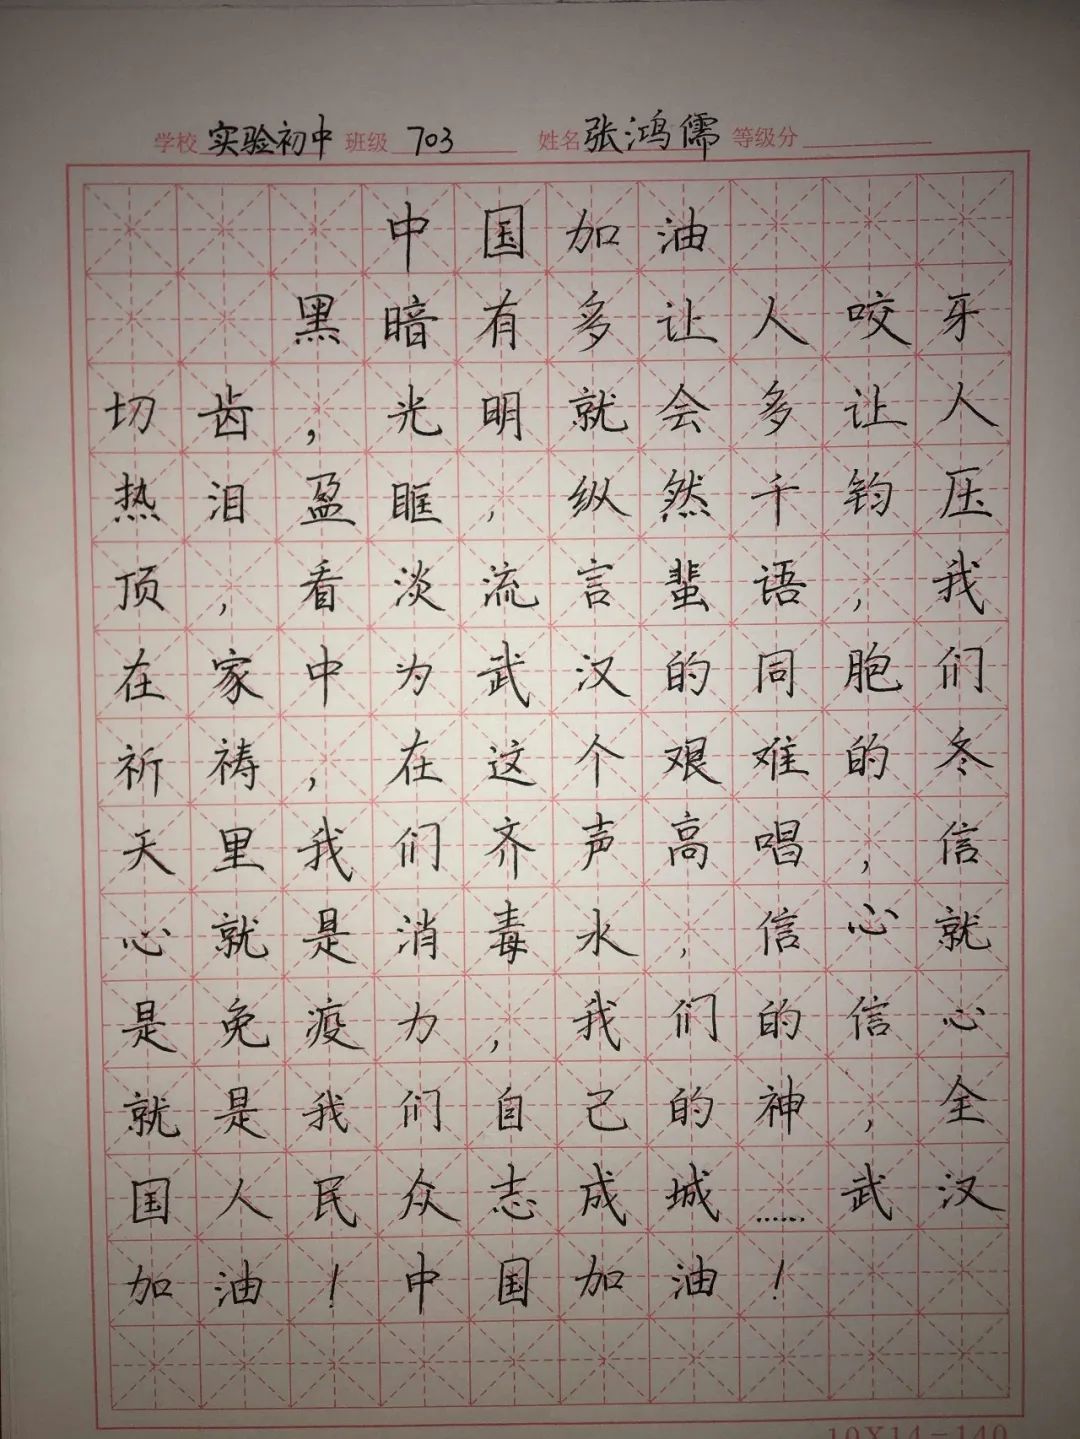 学校 实验初中 班级 703 姓名 张鸿儒 等级分
中国加油
黑暗有多让人咬牙
切齿，光明就会多让人
热泪盈眶，纵然千钧压
顶，看淡流言蜚语，我
在家中为武汉的同胞们
祈祷，在这个艰难的冬
天里我们齐声高唱，信
心就是消毒水，信心就
是免疫力，我们的信心
就是我们自己的神，全
国人民众志成城……武汉
加油！中国加油！
10X14=140